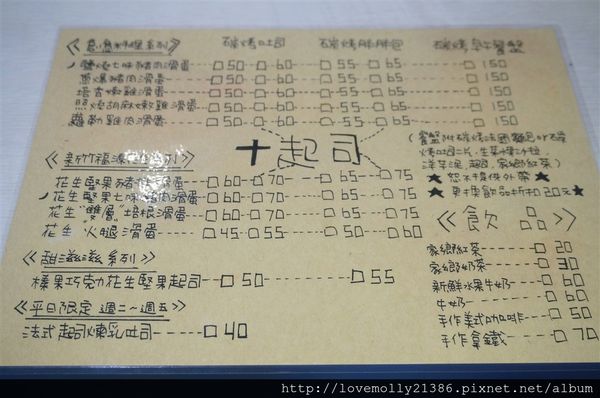 碳烤吐司 碳烤胖胖包 碳烤氣人餐盤
鹽燒七味豬肉滑蛋 50 60 55 65 150
蔥爆豬肉滑蛋 50 60 55 65 150
培香嫩雞滑蛋 50 60 55 65 150
照燒胡麻嫩雞滑蛋 50 60 55 65 150
羅勒雞肉滑蛋 50 60 55 65 150
+起司
(餐盤附碳烤
烤吐司二片、生菜
洋芋泥、起司、家鄉紅茶)
★ 恕不提供外帶 ★
★ 更換飲品折扣20元 ★
花生堅果豬 滑蛋 60 70 65 75
花生堅果七味豬肉滑蛋 60 70 65 75
花生"雙層"培根滑蛋 60 70 65 75
花生火腿滑蛋 45 55 50 60
《甜滋滋系列》
榛果巧克力花生堅果起司 50 55
《平日限定 週二~週五》
法式起司煉乳吐司 40
《飲 品》
家鄉紅茶 20
家鄉奶茶 30
新鮮水果牛奶 60
牛奶 60
手作美式咖啡 50
手作拿鐵 70
http://lovemolly21386.pixnet.net/album